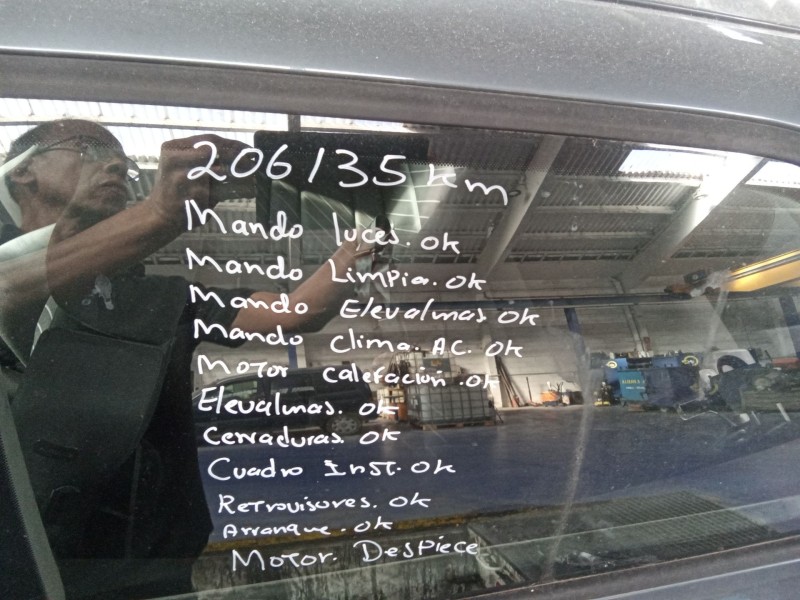 206135 km
Mando luces. ok
Mando Limpia. ok
Mando Elevalunas ok
Mando Clima. AC. ok
Motor calefación. ok
Elevalunas. ok
Cerraduras. ok
Cuadro Inst. ok
Retrovisores. ok
Arranque. ok
Motor. Despiece